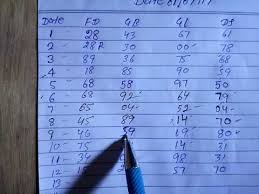 Date FD GB GL DS
1 - 28 43 67 61
2 - 28R 30 00 78
3 - 89 36 75 68
4 - 18 85 90 59
5 - 68 58 97 50
6 - 68 92 64 79
7 - 65 04 52 04
8 - 45 89 14 70
9 - 46 59 19 80
10 - 75 14 31
11 - 34 98 31
12 - 15 57 70
13